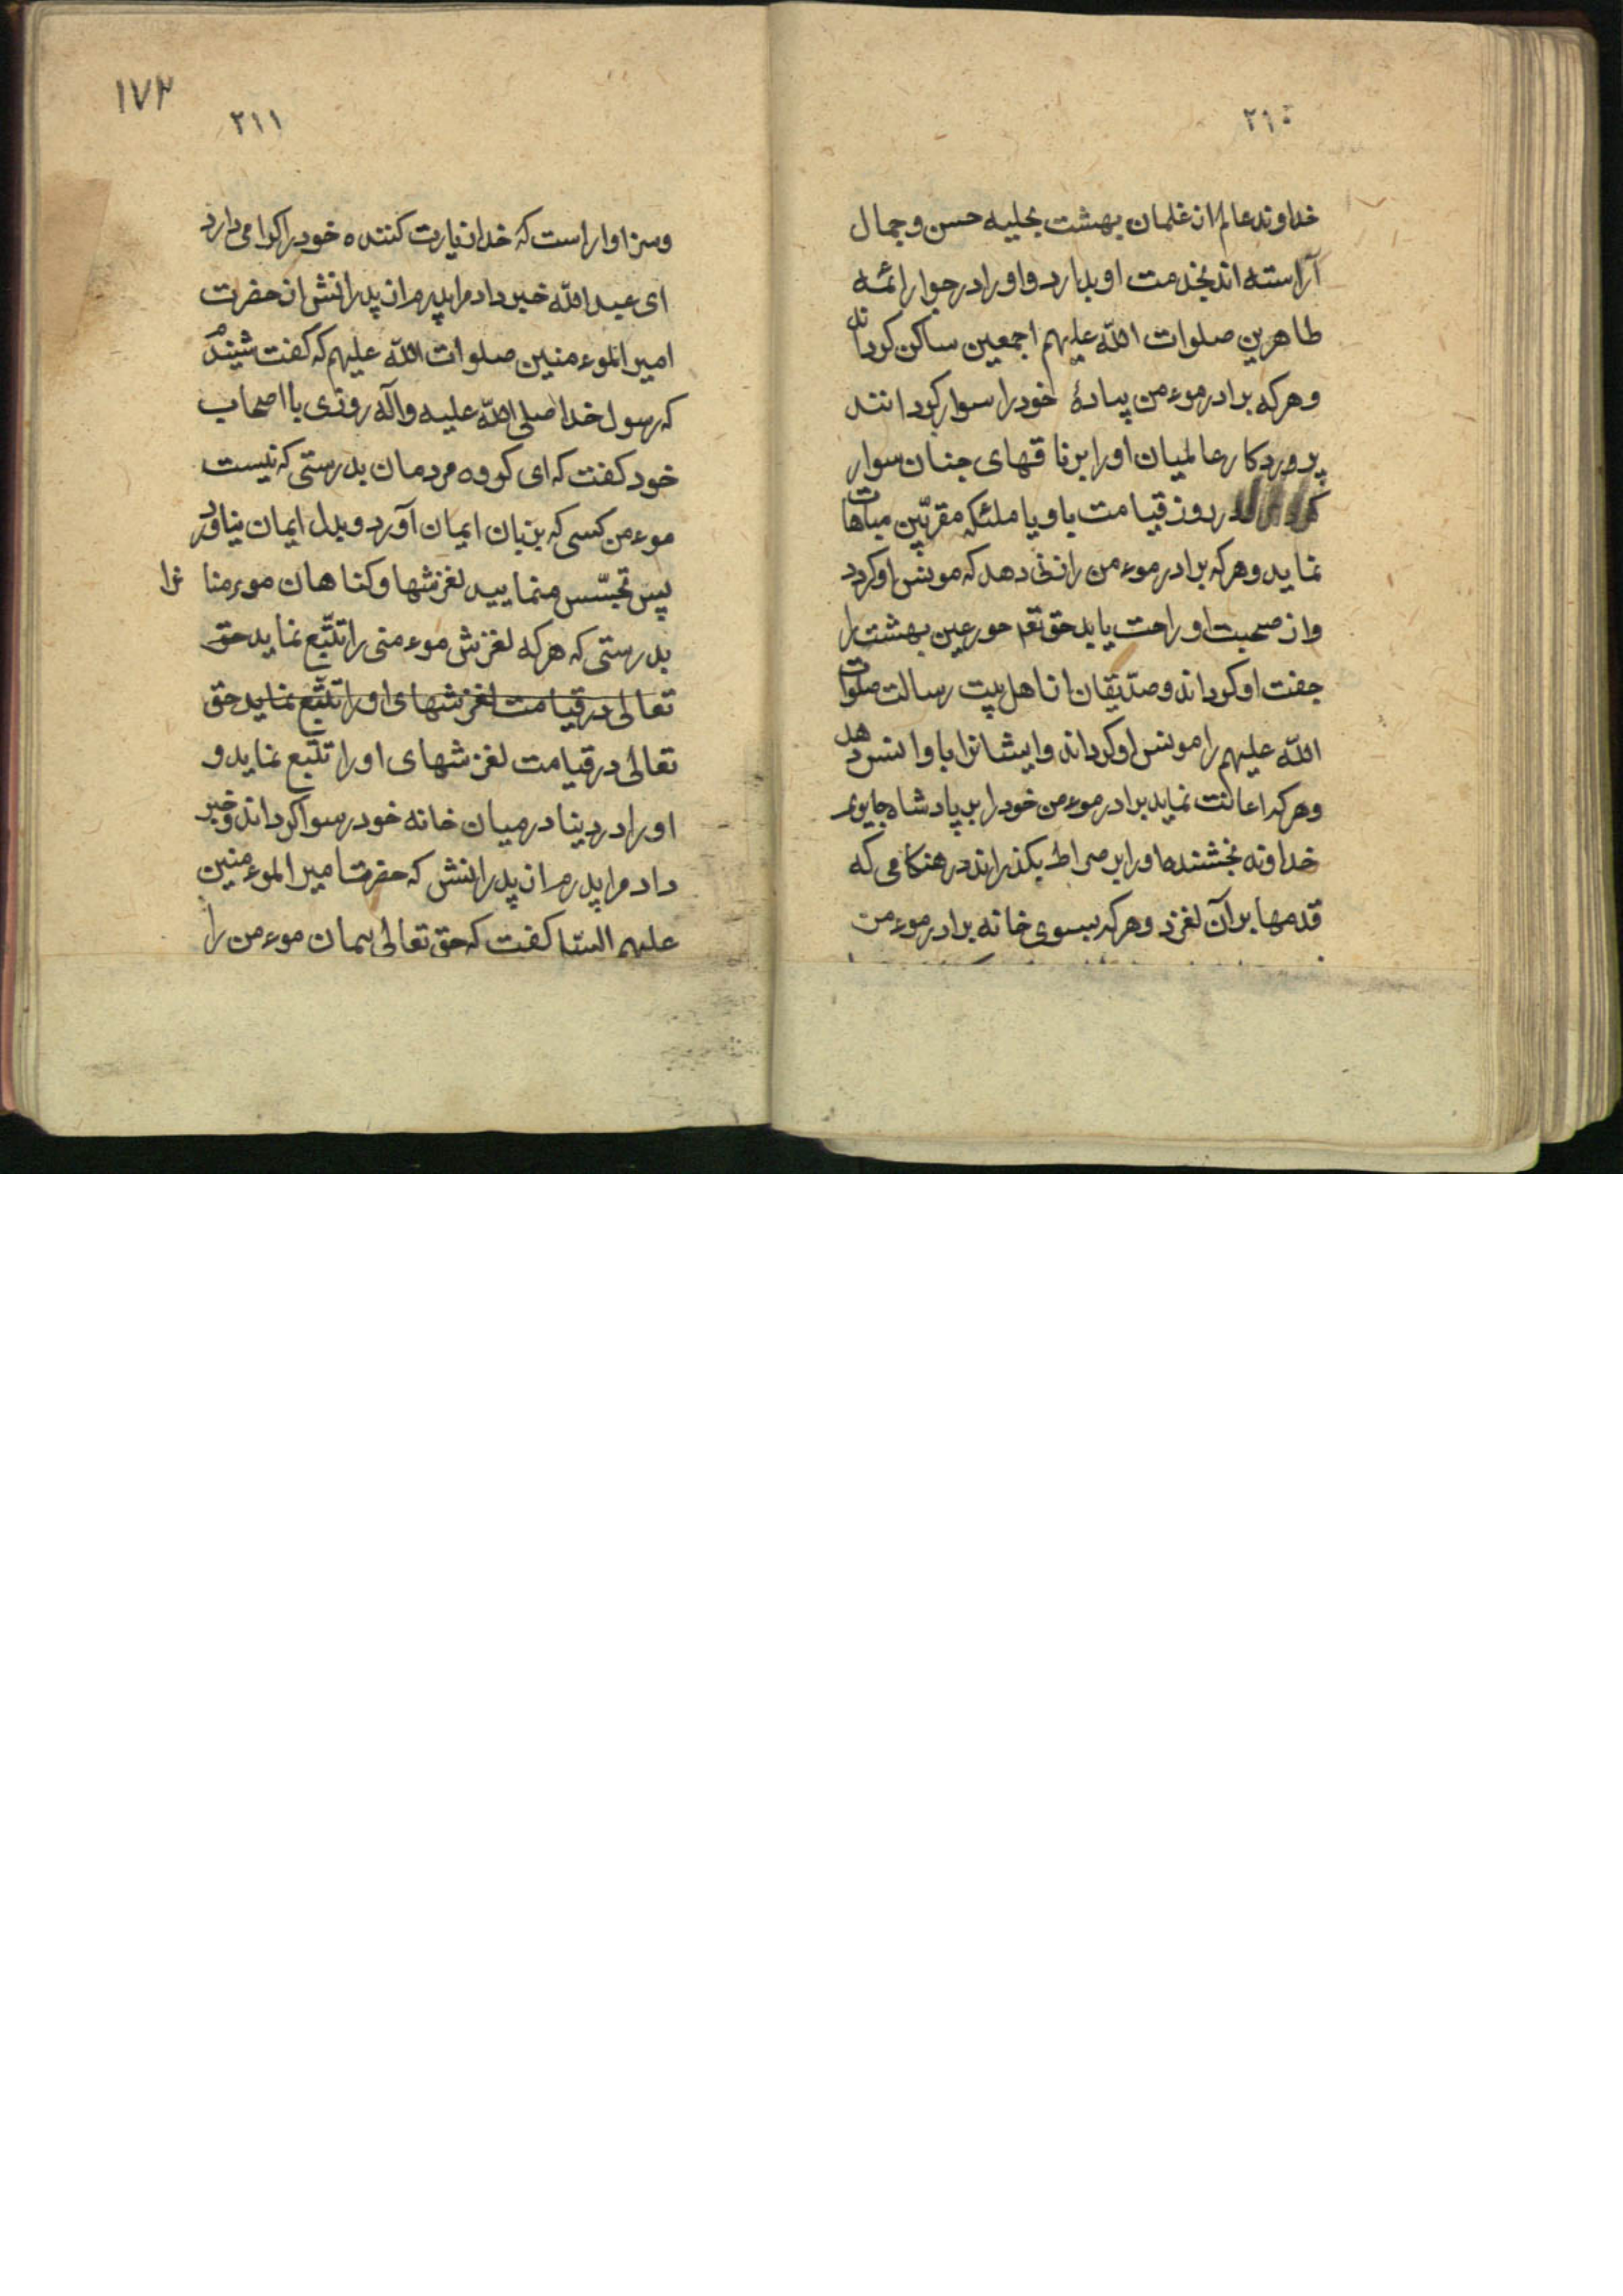 ۲۱۰
خداوند عالم از غلمان بهشت بحلیه حسن و جمال
آراسته اند بخدمت او بدارد و او را در جوار ائمه
طاهرین صلوات الله علیهم اجمعین ساکن کرداند
و هرکه برادر موءمن پیادهٔ خود را سوار کرداند
پروردکار عالمیان او را بر ناقهای جنان سوار
در روز قیامت باو با ملئکه مقربین مباهات
نماید و هرکه برادر موءمن را زنی دهد که مونس او کردد
و از صحبت او راحت یابد حق تع حور عین بهشت را
جفت او کرداند و صدّیقان از اهل بیت رسالت صلوات
الله علیهم را مونس او کرداند و ایشانرا باو انس دهد
و هرکه اعانت نماید برادر موءمن خود را بر پادشاه جایری
خداوند بخشنده او را بر صراط بکذراند در هنکامی که
قدمها بر آن لغزد و هرکه بسوی خانه برادر موءمن
۱۷۳
۲۱۱
و سزاوار است که خدا زیارت کننده خود را اکرامی دارد
ای عبد الله خبر داد مرا پدرم از پدرانش از حضرت
امیر الموءمنین صلوات الله علیهم که کفت شنیدم
که رسول خدا صلی الله علیه و آله روزی با اصحاب
خود کفت که ای کروه مردمان بدرستی که نیست
موءمن کسی که بزبان ایمان آورد و بدل ایمان نیاورد
پس تجسّس منمایید لغزشها و کناهان موءمنا نرا
بدرستی که هرکه لغزش موءمنی را تتبّع نماید حق
تعالی در قیامت لغزشهای او را تتبّع نماید حق
تعالی در قیامت لغزشهای او را تتبّع نماید و
او را در دینا در میان خانه خود رسوا کرداند و خبر
داد مرا پدرم از پدرانش که حضرت امیر الموءمنین
علیهم السّلا کفت که حق تعالی پیمان موءمن را